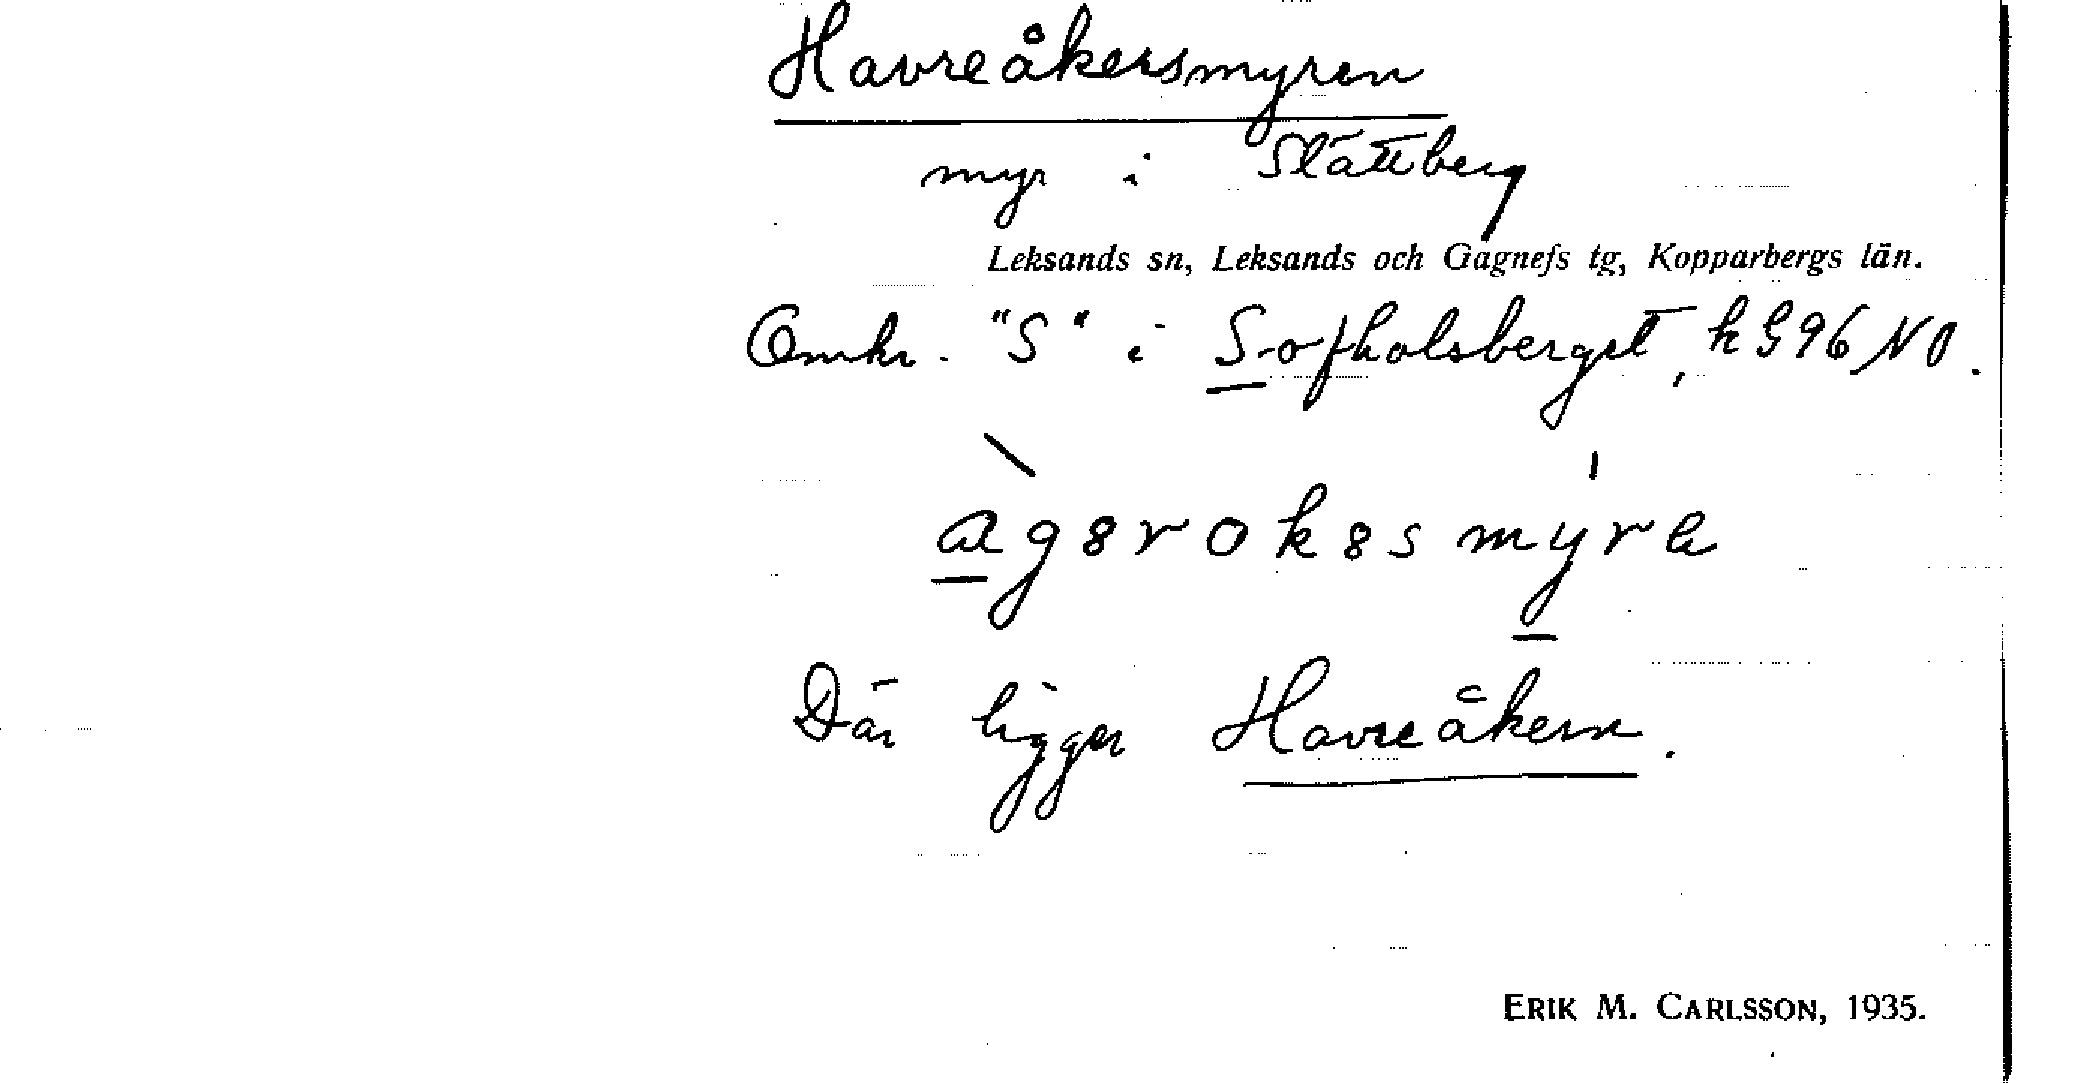 Havreåkersmyren
myr i Slättberg
Leksands sn, Leksands och Gagnefs tg, Kopparbergs län.
Omkr. "S" i Sofholsberget, k G 96 NO.
Där ligger Havreåkern.
ERIK M. CARLSSON, 1935.